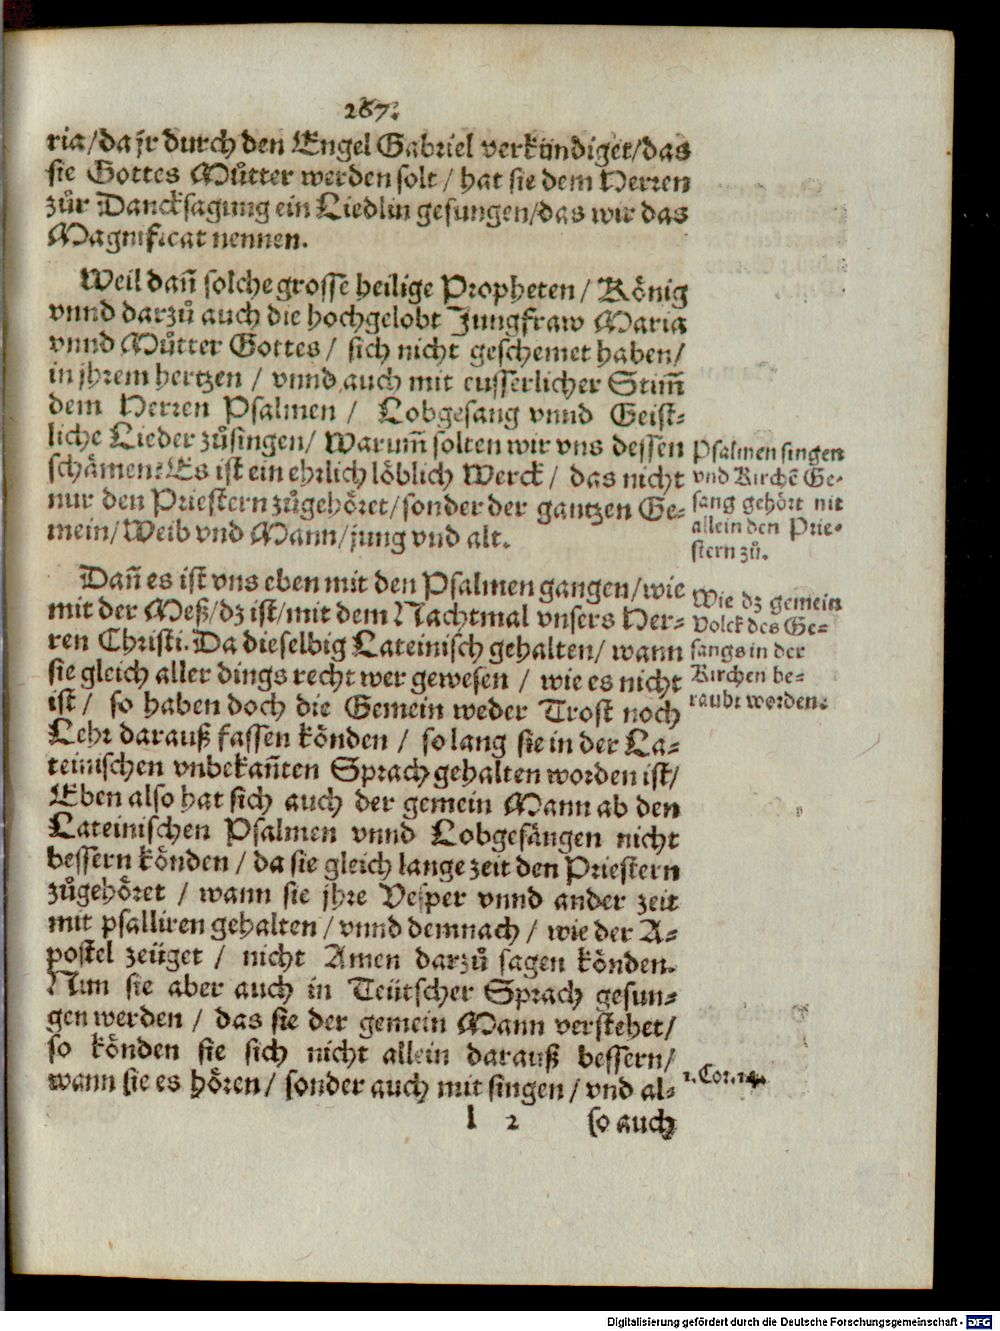 287.
ria/da jr durch den Engel Gabriel verkündiget/das
sie Gottes Můtter werden solt / hat sie dem Herren
zůr Dancksagung ein Liedlin gesungen/das wir das
Magnificat nennen.
Weil dañ solche grosse heilige Propheten / König
vnnd darzů auch die hochgelobt Jungfraw Maria
vnnd Můtter Gottes / sich nicht geschemet haben/
in jhrem hertzen / vnnd auch mit eusserlicher Stim̃
dem Herren Psalmen / Lobgesang vnnd Geist-
liche Lieder zůsingen/ Warum̃ solten wir vns dessen
schämen? Es ist ein ehrlich löblich Werck / das nicht
nur den Priestern zůgehöret/sonder der gantzen Ge-
mein/ Weib vnd Mann/jung vnd alt.
Psalmen singen
vnd Kirchẽ Ge-
sang gehört nit
allein den Prie-
stern zů.
Dañ es ist vns eben mit den Psalmen gangen/wie
mit der Meß/dz ist/mit dem Nachtmal vnsers Her-
ren Christi. Da dieselbig Lateinisch gehalten/ wann
sie gleich aller dings recht wer gewesen / wie es nicht
ist / so haben doch die Gemein weder Trost noch
Lehr darauß fassen könden / so lang sie in der La-
teinischen vnbekañten Sprach gehalten worden ist/
Eben also hat sich auch der gemein Mann ab den
Lateinischen Psalmen vnnd Lobgesängen nicht
bessern könden / da sie gleich lange zeit den Priestern
zůgehöret / wann sie jhre Vesper vnnd ander zeit
mit psalliren gehalten / vnnd demnach / wie der A-
postel zeüget / nicht Amen darzů sagen könden.
Nun sie aber auch in Teütscher Sprach gesun-
gen werden / das sie der gemein Mann verstehet/
so könden sie sich nicht allein darauß bessern/
wann sie es hören / sonder auch mit singen / vnd al-
Wie dz gemein
Volck des Ge-
sangs in der
Kirchen be-
raubt worden.
1. Cor. 14.
l 2 so auch
Digitalisierung gefördert durch die Deutsche Forschungsgemeinschaft - DFG